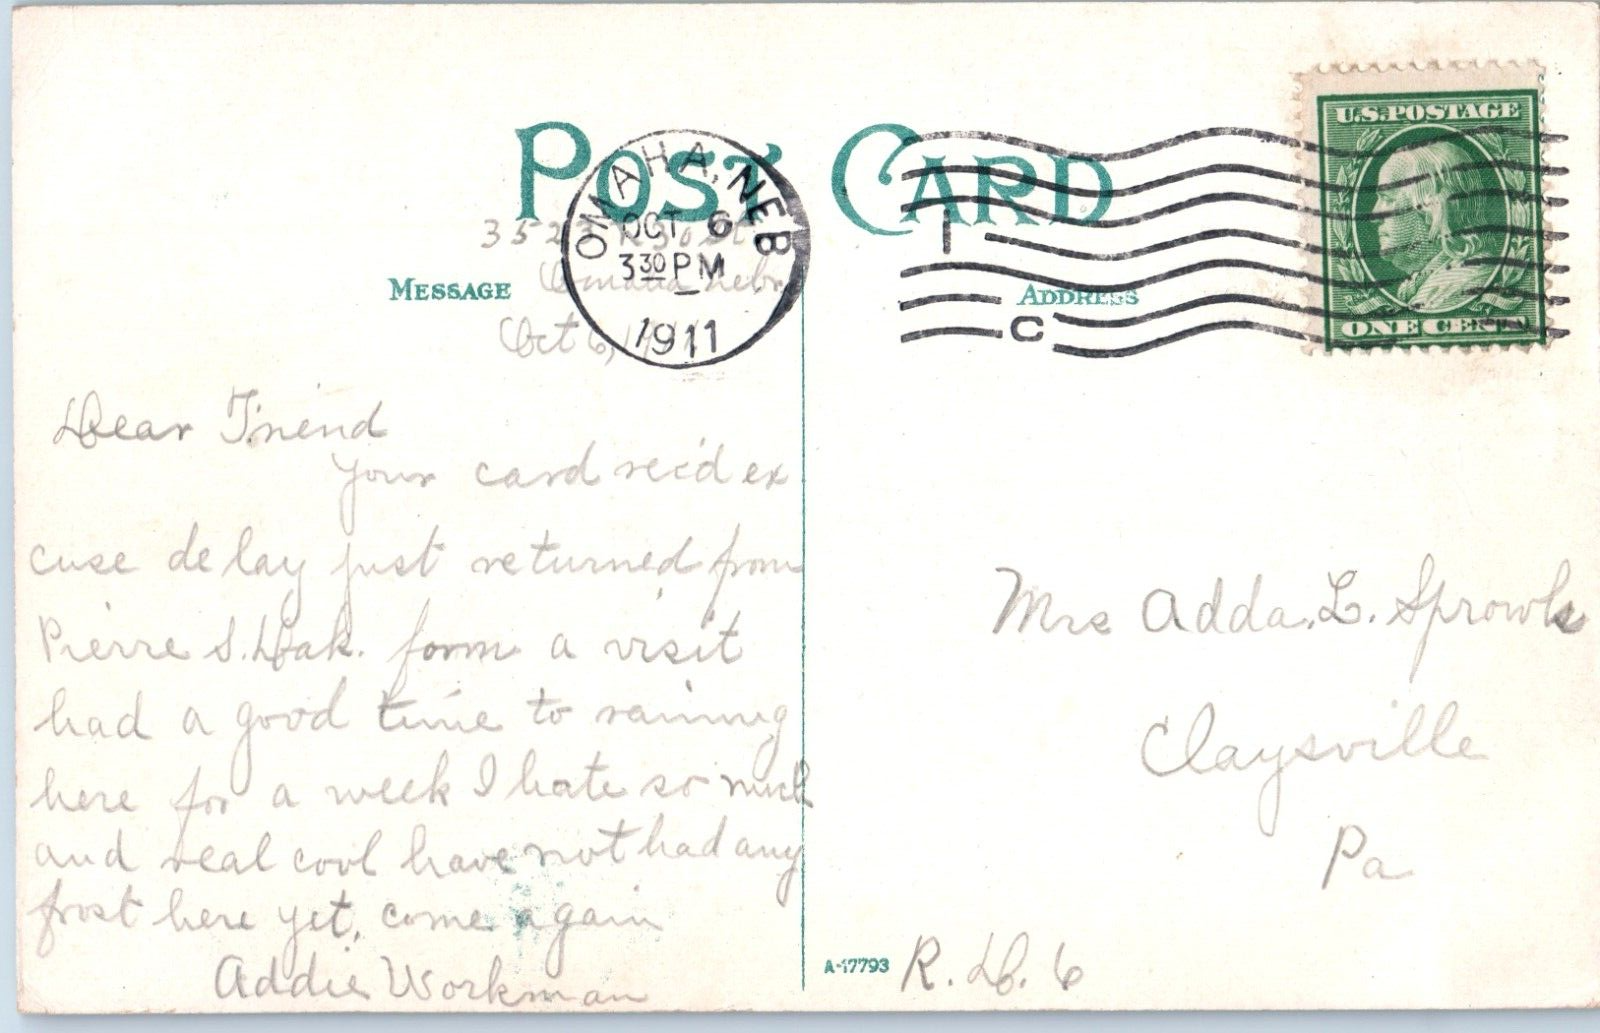 POST CARD
OMAHA, NEB
OCT 6
3 30 PM
1911
1
C
U.S. POSTAGE
ONE CENT
3523
Omaha Nebr
MESSAGE
ADDRESS
Oct 6,
Dear Friend
Your card rec'd ex
cuse delay just returned from
Pierre S. Dak. form a visit
had a good time to raining
here for a week I hate so much
and real cool have not had any
frost here yet, come again
Addie Workman
Mrs Adda. L. Sprowls
Claysville
Pa
A-17793
R. D. 6